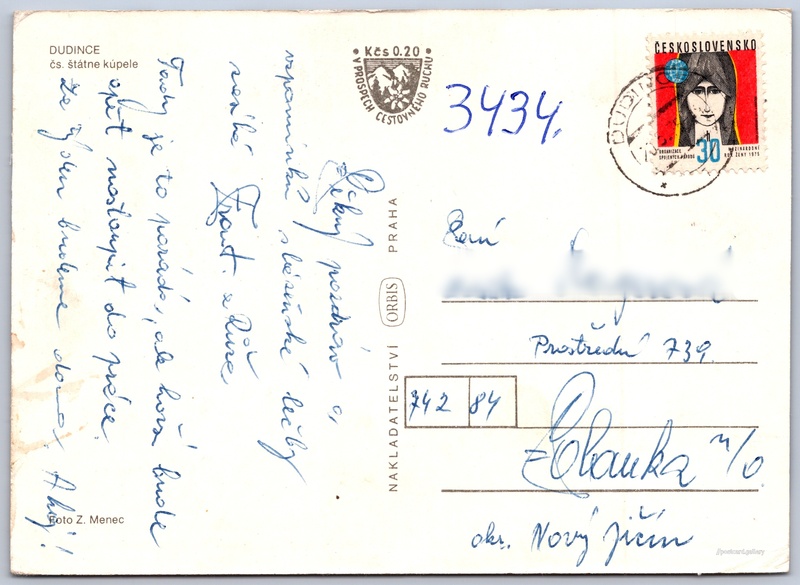 DUDINCE
čs. štátne kúpele
Kčs 0.20
V PROSPĚCH CESTOVNÉHO RUCHU
3434.
ČESKOSLOVENSKO
ORGANIZACE
SPOJENÝCH NÁRODŮ
30
MEZINÁRODNÍ
ROK ŽENY 1975
DUDINCE
Pěkný pozdrav a
vzpomínku z lázeňské léčby
Frant. a Růže
Tady je to paráda, ale horší bude
opět nastoupit do práce.
Za týden budeme doma. Ahoj!
NAKLADATELSTVÍ ORBIS PRAHA
Paní
Prostřední 739
742 84
n/O
okr. Nový Jičín
Foto Z. Menec